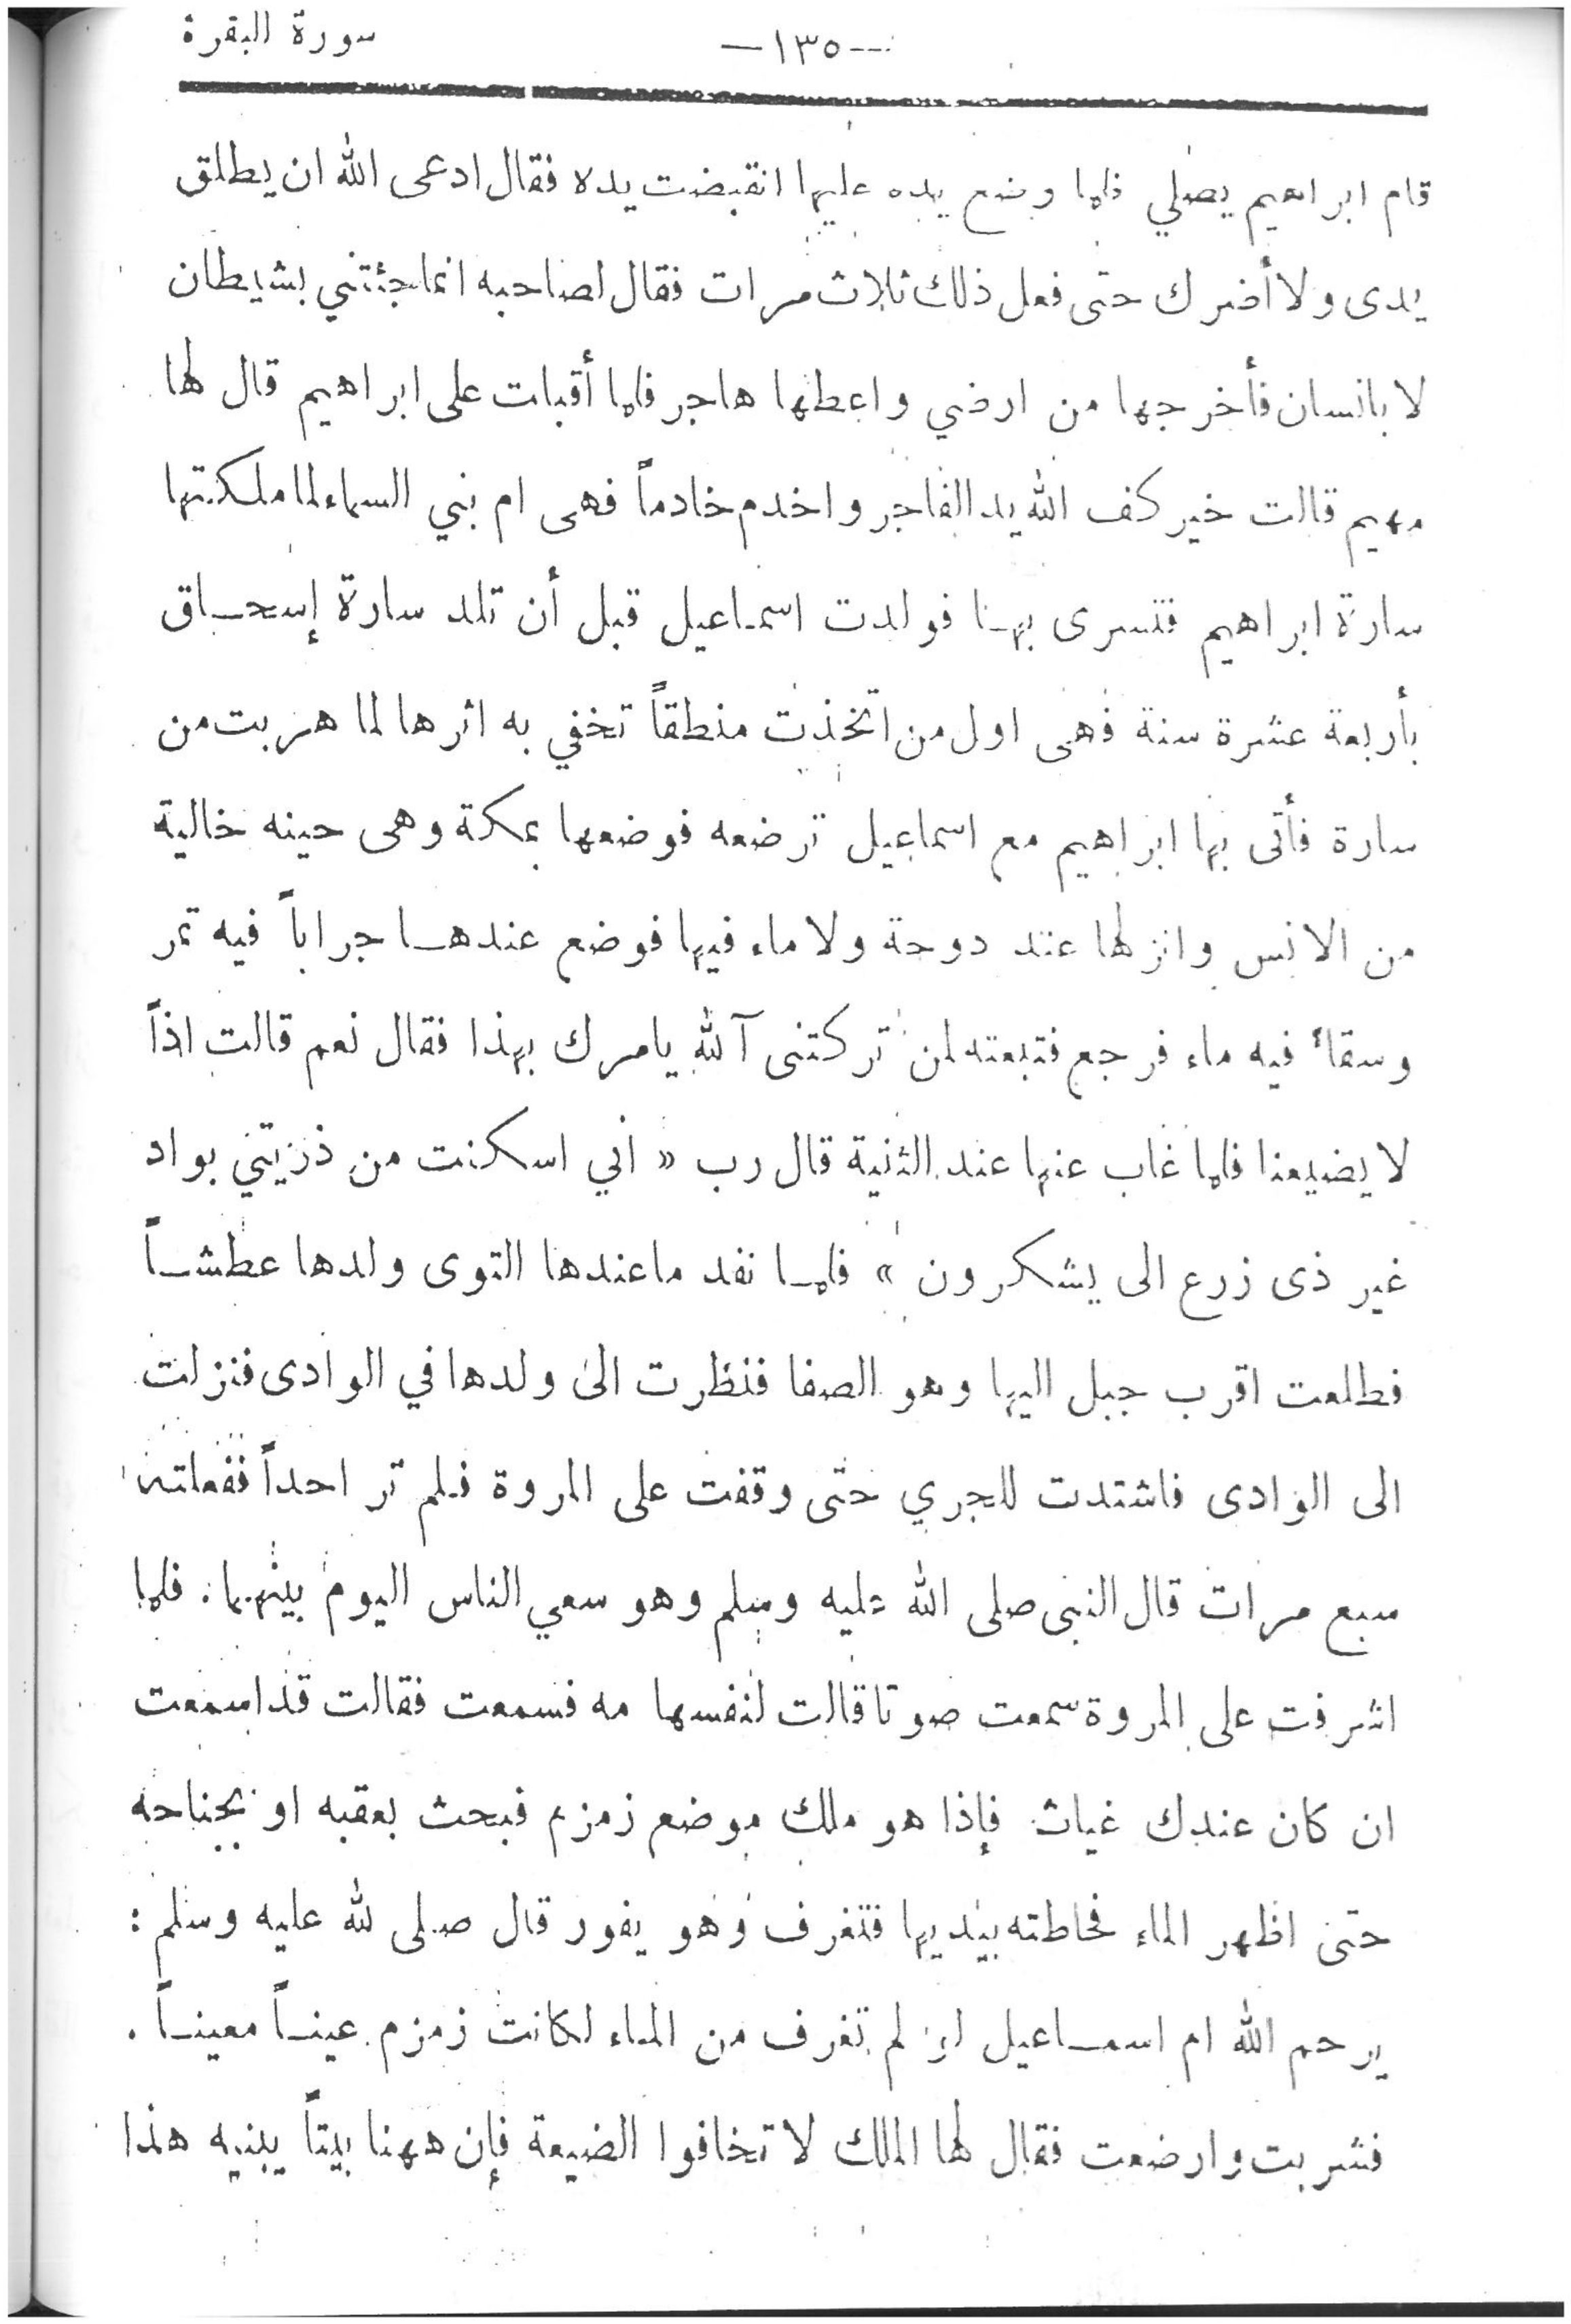 سورة البقرة
—١٣٥—
قام ابراهيم يصلي فلما وضع يده عليها انقبضت يده فقال ادعى الله ان يطلق
يدى ولا أضرك حتى فعل ذلك ثلاث مرات فقال لصاحبه انما جئتني بشيطان
لا بانسان فأخرجها من ارضي واعطها هاجر فلما أقبلت على ابراهيم قال لها
مهيم قالت خير كف الله يد الفاجر واخدم خادماً فهى ام بني السماء لما ملكتها
سارة ابراهيم فتسرى بهـا فولدت اسمـاعيل قبل أن تلد سارة إسحـاق
بأربعة عشرة سنة فهى اول من اتخذت منطقاً تخفي به اثرها لما هربت من
سارة فأتى بها ابراهيم مع اسماعيل ترضعه فوضعها بمكة وهى حينه خالية
من الانس وانزلها عند دوحة ولا ماء فيها فوضع عندهـا جراباً فيه تمر
وسقاً فيه ماء فرجع فتبعته لمن تركتنى آلله يامرك بهذا فقال نعم قالت اذاً
لا يضيعنا فلما غاب عنها عند الثنية قال رب « اني اسكنت من ذريتي بواد
غير ذى زرع الى يشكرون » فلمـا نفد ماعندها التوى ولدها عطشـاً
فطلعت اقرب جبل اليها وهو الصفا فنظرت الى ولدها في الوادى فنزلت
الى الوادى فاشتدت للجري حتى وقفت على المروة فلم تر احداً ففعلته
سبع مرات قال النبى صلى الله عليه وسلم وهو سعي الناس اليوم بينهما. فلما
اشرفت على المروة سمعت صوتا قالت لنفسها مه فسمعت فقالت قد اسمعت
ان كان عندك غياث فإذا هو ملك موضع زمزم فبحث بعقبه او بجناحه
حتى اظهر الماء فحاطته بيديها فتغرف وهو يفور قال صلى لله عليه وسلم :
يرحم الله ام اسمـاعيل لو لم تغرف من المـاء لكانت زمزم عينـاً معينـاً .
فشربت وارضعت فقال لها الملك لا تخافوا الضيعة فإن ههنا بيتاً يبنيه هذا